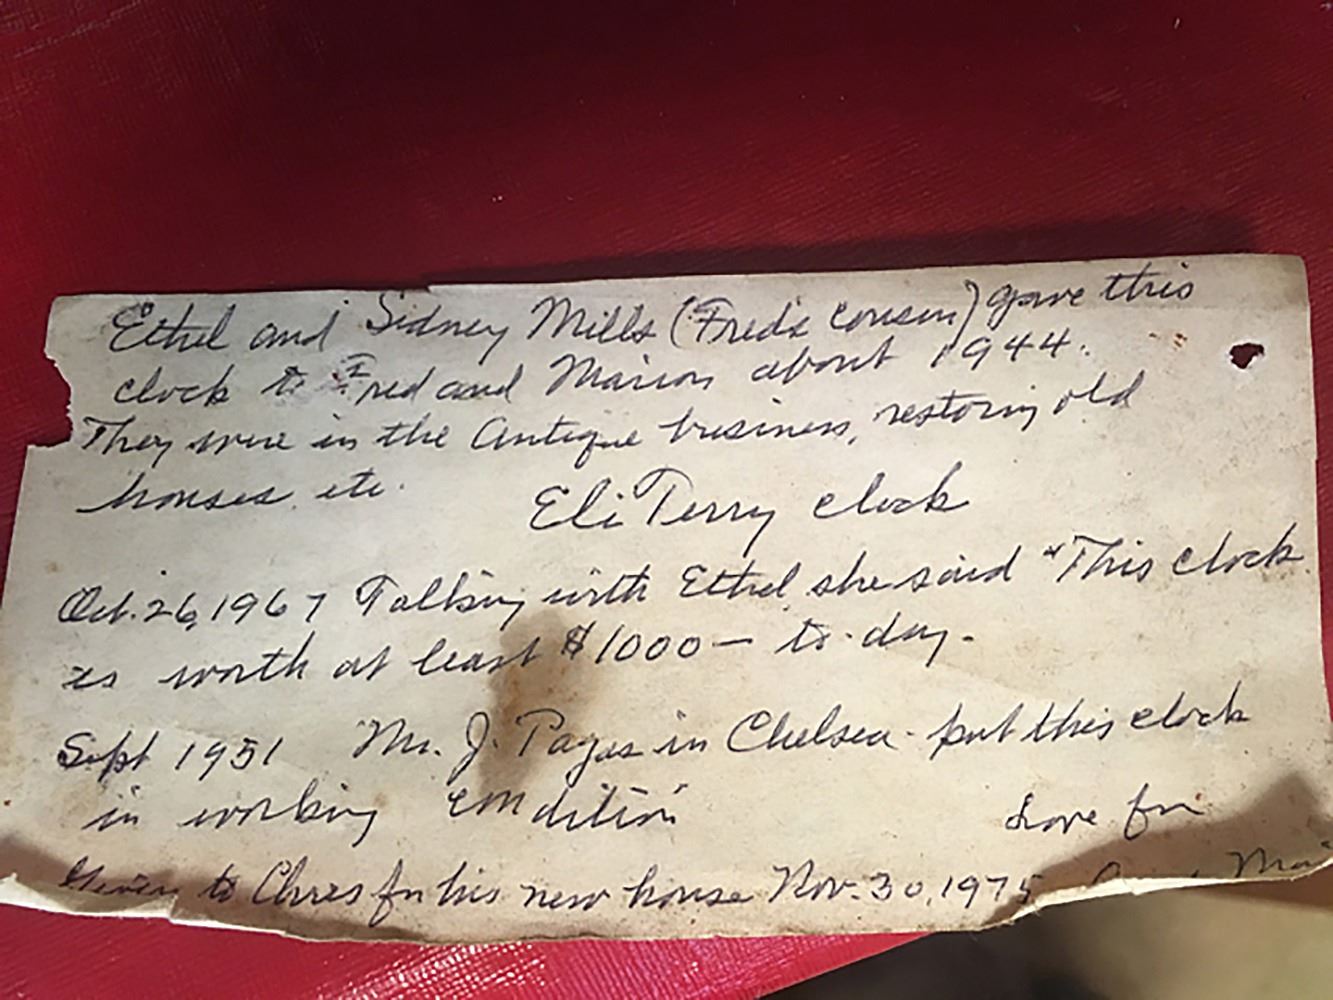 Ethel and Sidney Mills (Fred's cousin) gave this
clock to Fred and Marion about 1944.
They were in the Antique business, restoring old
houses etc.
Eli Terry clock
Oct. 26, 1967 Talking with Ethel she said "This clock
is worth at least $1000— to-day.
Sept 1951 Mr. J. Pagas in Chelsea - put this clock
in working condition
Love fn
Given to Chris for his new house Nov. 30, 1975